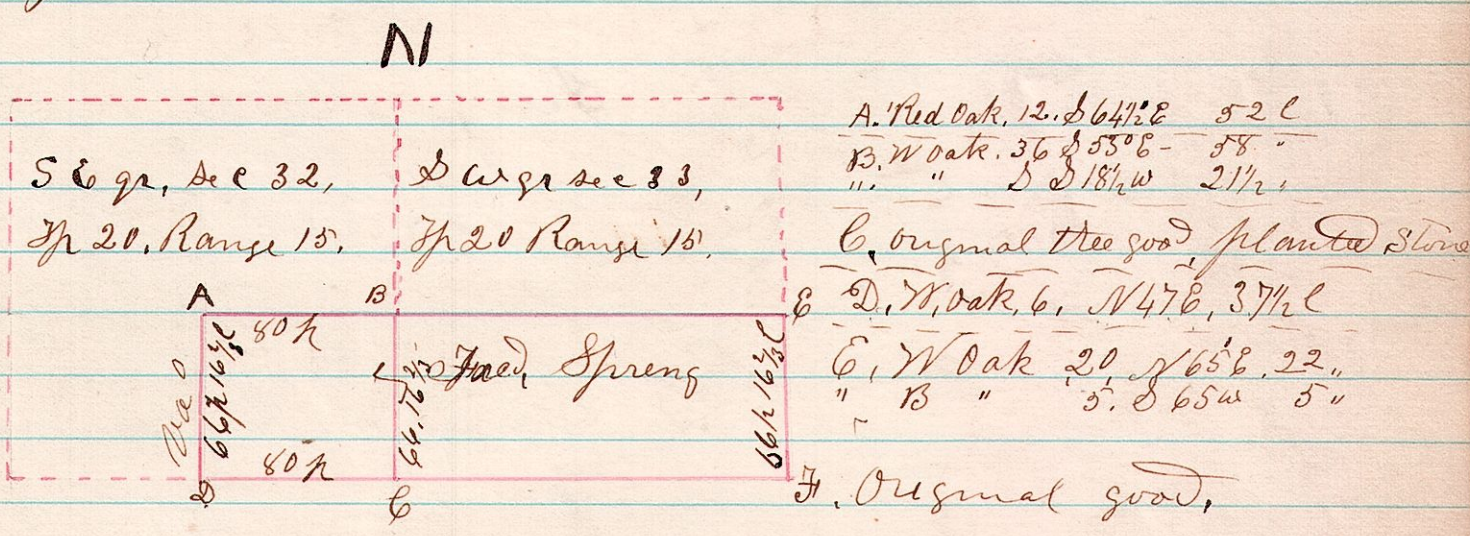 N
S E qr, sec 32,
Tp 20. Range 15.
S W qr sec 33,
Tp 20 Range 15.
A
B
E
80 p
66 p 16 2/3 l
Va 0
80 p
D
C
66. 16 2/3
Fred, Spreng
66 p 16 2/3 l
A. Red Oak. 12. S 64 1/2° E 52 l
B. W Oak. 36 S 55° E - 58 "
". " S S 18 1/2 W 21 1/2 "
C, original tree good, planted Stone
D, W, Oak, 6, N 47 E, 37 1/2 l
E, W Oak 20, N 65 E. 22 "
" B " 5. S 65 W 5 "
F. Original good,